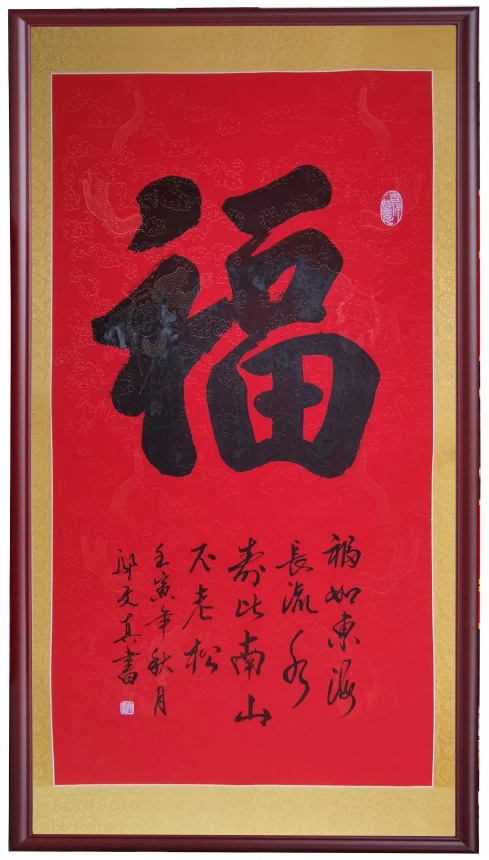 福
福如東海
長流水
壽比南山
不老松
壬寅年秋月
鄢文真書